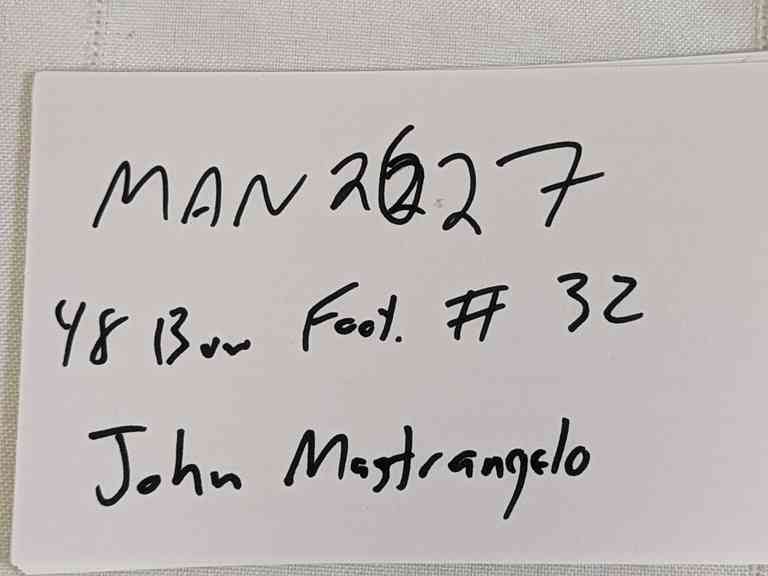 MAN 2627
48 Bow Foot. # 32
John Mastrangelo